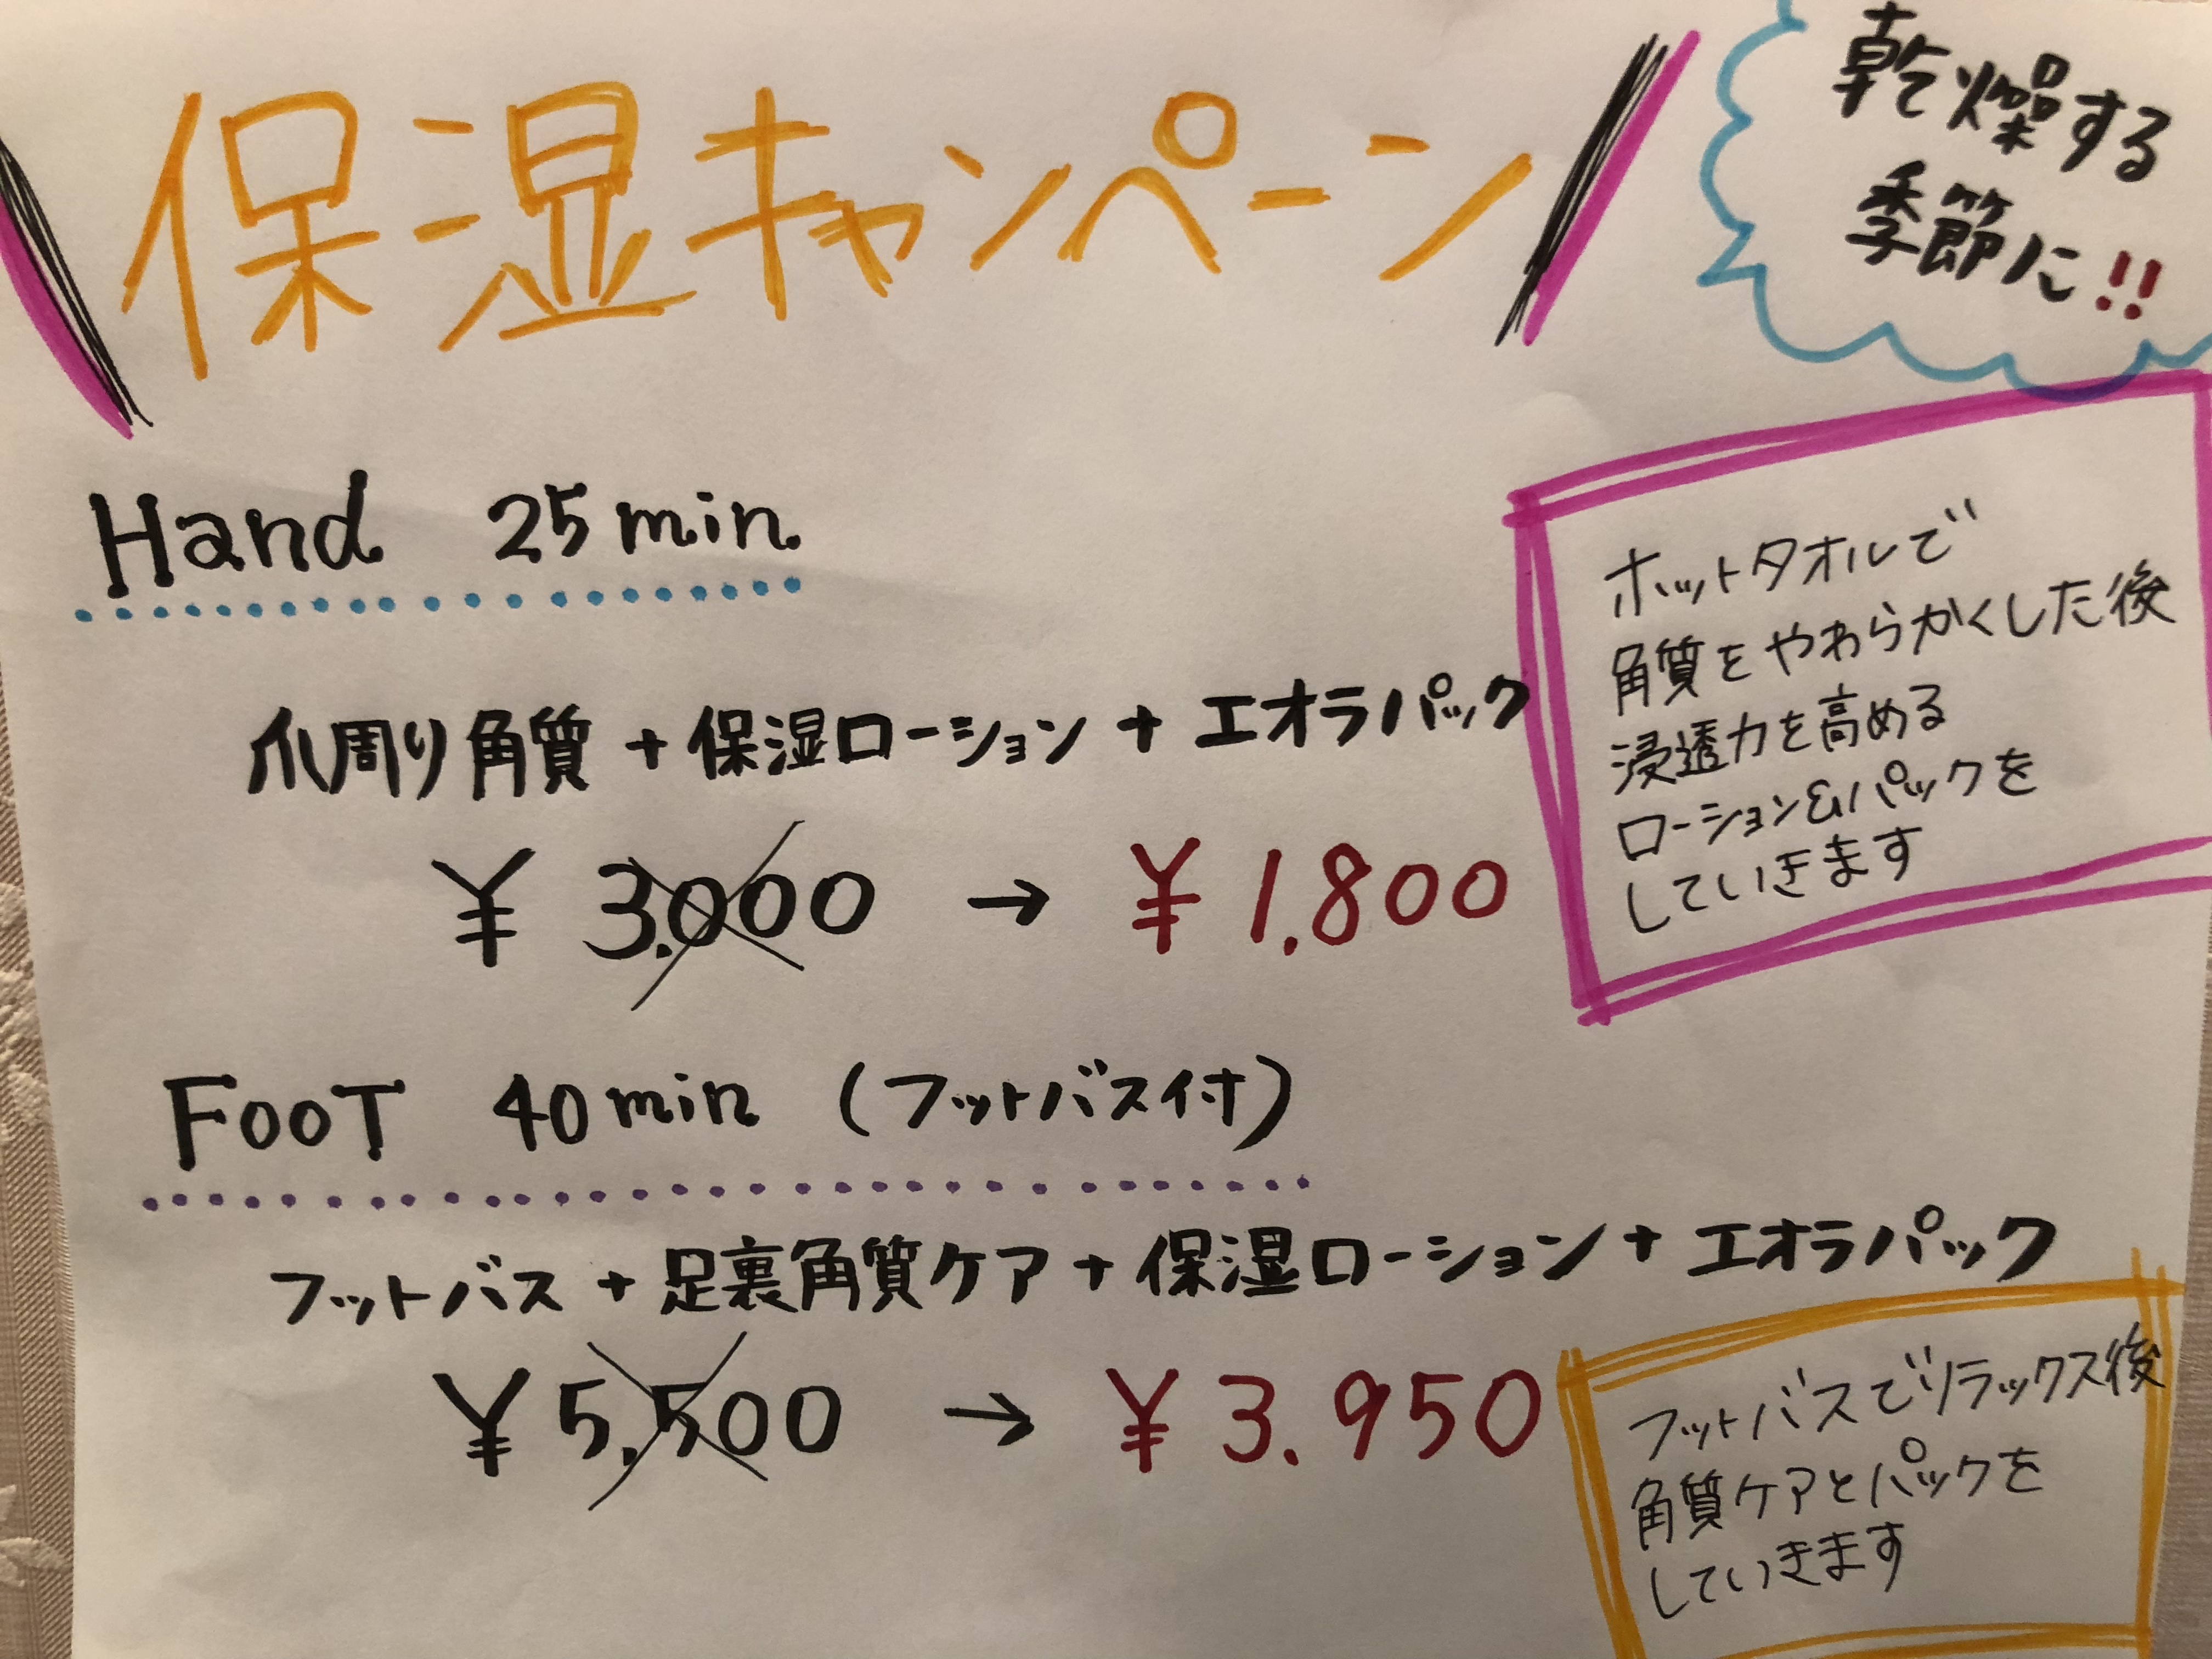 保湿キャンペーン
乾燥する
季節に!!
Hand 25min
爪周り角質+保湿ローション+エオラパック
¥3.000 → ¥1.800
ホットタオルで
角質をやわらかくした後
浸透力を高める
ローション&パックを
していきます
FOOT 40min (フットバス付)
フットバス+足裏角質ケア+保湿ローション+エオラパック
¥5.500 → ¥3.950
フットバスでリラックス後
角質ケアとパックを
していきます